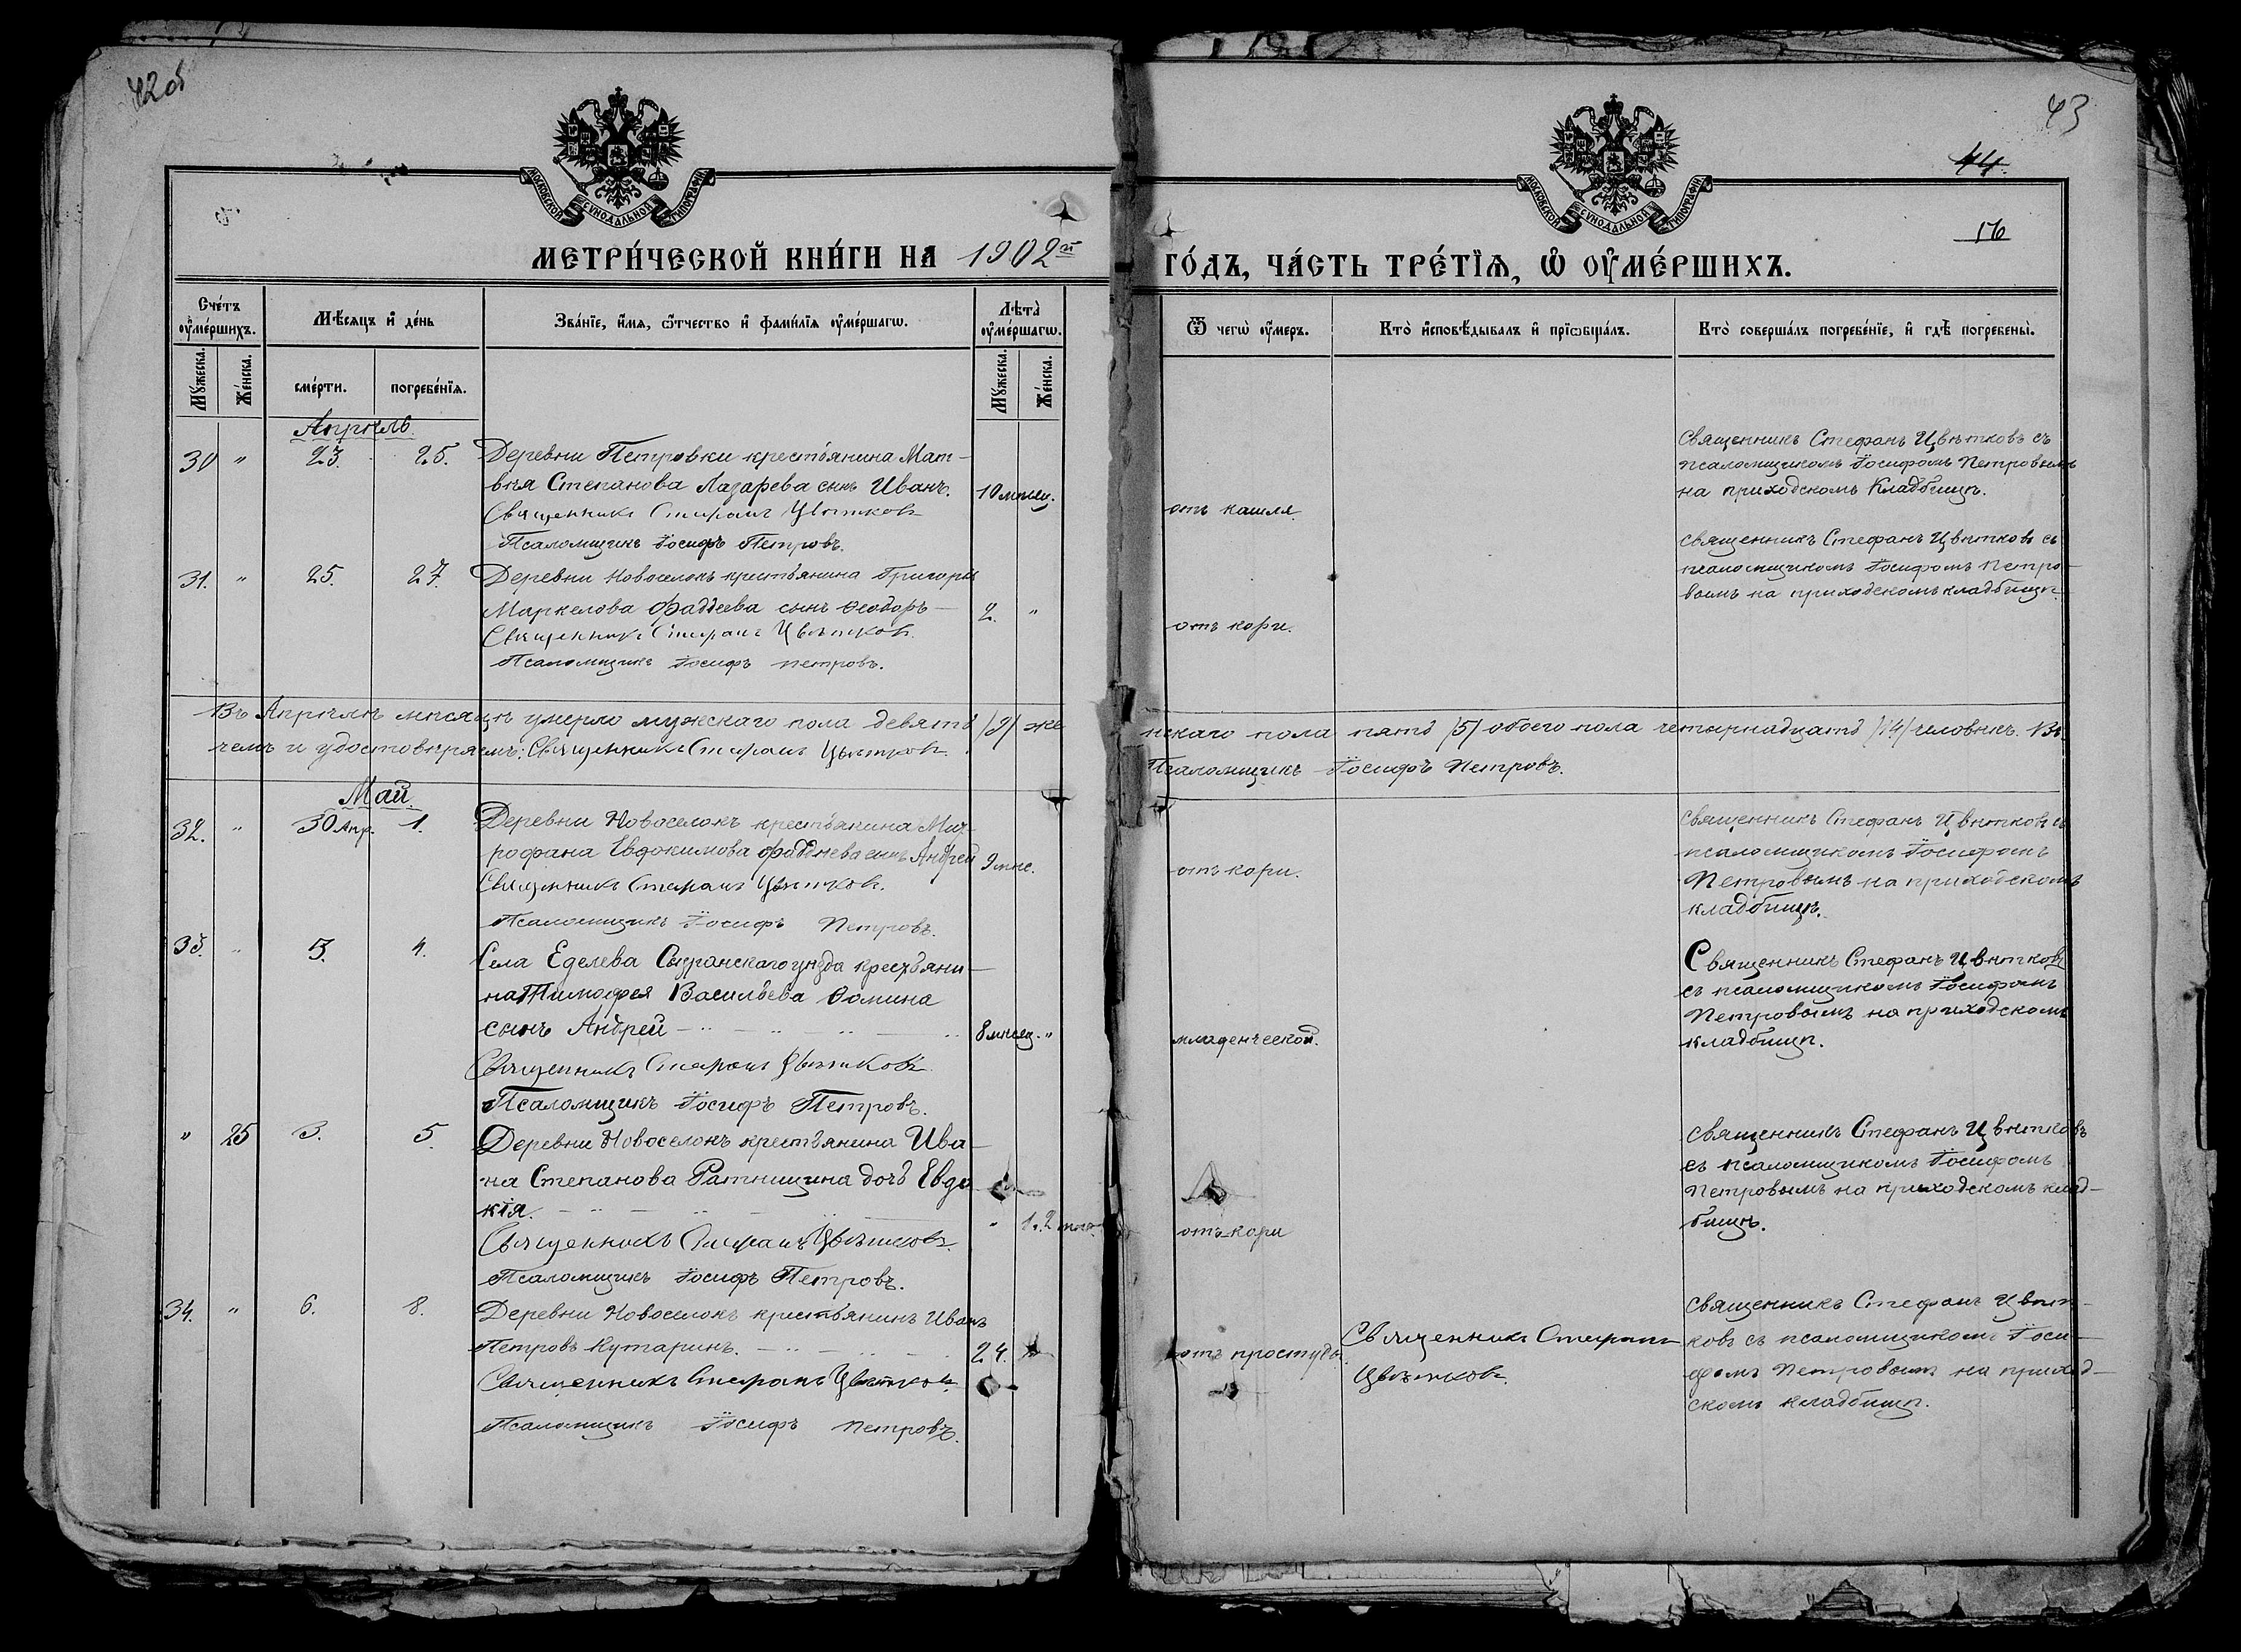 42об
43
44.
16
МОСКОВСКОЙ СѴНОДАЛЬНОЙ ТИПОГРАФІИ
МОСКОВСКОЙ СѴНОДАЛЬНОЙ ТИПОГРАФІИ
МЕТРИ́ЧЕСКОЙ КНИ́ГИ НА 1902й
ГО́ДЪ, ЧА́СТЬ ТРЕ́ТЇѦ, Ѡ҆ ОУ҆МЕ́РШИХЪ.
Сче́тъ оу҆ме́ршихъ.
Мѣ́сѧцъ и҆ де́нь
Зва́нїе, и҆́мѧ, ѻ҆́тчество и҆ фами́лїѧ оу҆ме́ршагѡ.
Лѣ̀та оу҆ме́ршагѡ.
Мꙋ́жеска.
Же́нска.
сме́рти.
погребе́нїѧ.
Мꙋ́жеска.
Же́нска.
Ѿ чегѡ̀ оу҆́меръ.
Кто̀ и҆сповѣ́дывалъ и҆ прїѡбща́лъ.
Кто̀ соверша́лъ погребе́нїе, и҆ гдѣ̀ погребены̀.
Апрѣль.
30 " 23. 25. Деревни Петровки крестьянина Мат-
вѣя Степанова Лазарева сынъ Иванъ. 10 мѣсяц.
Священникъ Стефанъ Цвѣтковъ
Псаломщикъ Іосифъ Петровъ.
отъ кашля.
Священникъ Стефанъ Цвѣтковъ съ
псаломщикомъ Іосифомъ Петровымъ
на приходскомъ Кладбищѣ.
31. " 25. 27. Деревни Новоселокъ крестьянина Григорія
Маркелова Фаддеева сынъ Ѳеодоръ — 2. "
Священникъ Стефанъ Цвѣтковъ.
Псаломщикъ Іосифъ Петровъ.
отъ кори.
Священникъ Стефанъ Цвѣтковъ съ
псаломщикомъ Іосифомъ Петро-
вымъ на приходскомъ кладбищѣ.
Въ Апрѣлѣ мѣсяцѣ умерло мужскаго пола девять /9/ же
нскаго пола пять /5/ обоего пола четырнадцать /14/ человѣкъ. Въ
чемъ и удостовѣряемъ: Священникъ Стефанъ Цвѣтковъ.
Псаломщикъ Іосифъ Петровъ.
Май.
32. " 30 Апр. 1. Деревни Новоселокъ крестьянина Мит-
рофана Евдокимова Фаддѣева сынъ Андрей 9 мѣс.
Священникъ Стефанъ Цвѣтковъ.
Псаломщикъ Іосифъ Петровъ.
отъ кори.
Священникъ Стефанъ Цвѣтковъ съ
псаломщикомъ Іосифомъ
Петровымъ на приходскомъ
кладбищѣ.
33. " 3. 4. Села Еделева Сызранскаго уѣзда крестьяни-
на Тимофея Васильева Ѳомина
сынъ Андрей 8 мѣсяц. "
Священникъ Стефанъ Цвѣтковъ.
Псаломщикъ Іосифъ Петровъ.
младенческой.
Священникъ Стефанъ Цвѣтковъ
съ псаломщикомъ Іосифомъ
Петровымъ на приходскомъ
кладбищѣ.
" 25 3. 5. Деревни Новоселокъ крестьянина Ива-
на Степанова Ратнищина дочь Евдо
кія. " 1. 2 мѣс.
Священникъ Стефанъ Цвѣтковъ.
Псаломщикъ Іосифъ Петровъ.
отъ кори
Священникъ Стефанъ Цвѣтковъ
съ псаломщикомъ Іосифомъ
Петровымъ на приходскомъ клад-
бищѣ.
34. " 6. 8. Деревни Новоселокъ крестьянинъ Иванъ
Петровъ Кутаринъ. 24. "
Священникъ Стефанъ Цвѣтковъ.
Псаломщикъ Іосифъ Петровъ.
отъ простуды.
Священникъ Стефанъ
Цвѣтковъ.
Священникъ Стефанъ Цвѣт-
ковъ съ псаломщикомъ Іоси-
фомъ Петровымъ на приход-
скомъ кладбищѣ.